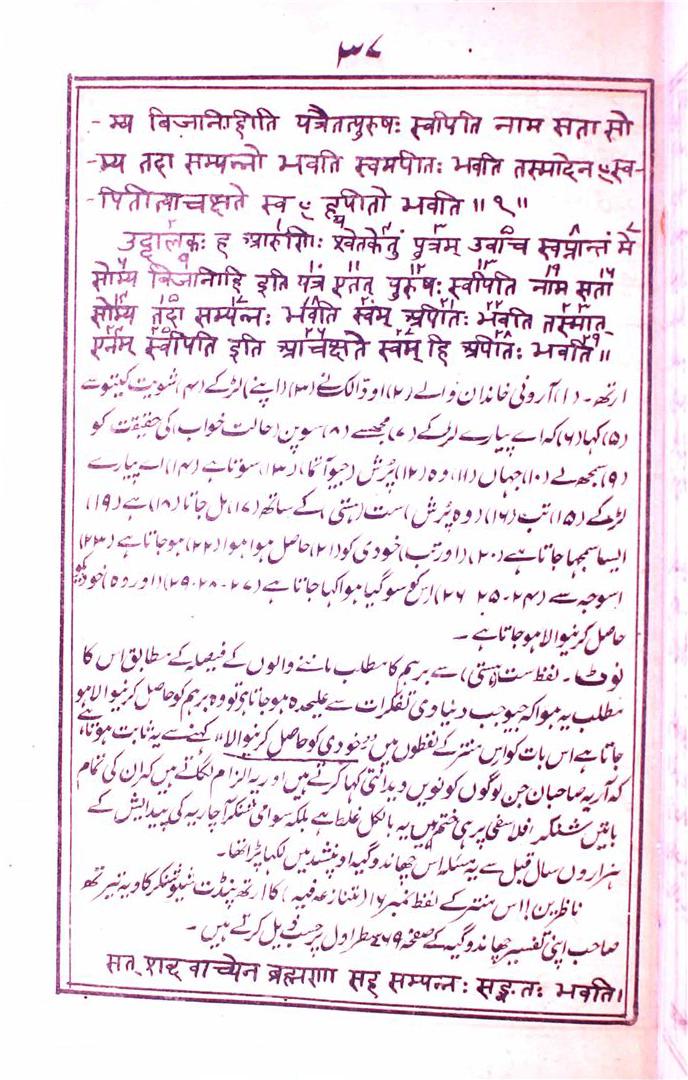 ۳۷
-म्य विजानीहीति यत्रैतत्पुरुषः स्वपिति नाम सता सो
-म्य तदा सम्पन्नो भवति स्वमपीतः भवति तस्मादेनꣳस्व-
-पितीत्याचक्षते स्व ꣳ ह्यपीतो भवति ॥ १॥
उद्दालकः ह आरुणिः श्वेतकेतुं पुत्रम् उवाच स्वप्नान्तं मे
सोम्य विजानीहि इति यत्र एतत् पुरुषः स्वपिति नाम सता
सोम्य तदा सम्पन्नः भवति स्वम् अपीतः भवति तस्मात्
एनम् स्वपिति इति आचक्षते स्वम् हि अपीतः भवति ॥
ارتھ۔ (۱) آرونی خاندان والے (۲) اودالک نے (۳) (اپنے) لڑکے (۴) شویت کیتو سے
(۵) کہا (۶) کہ اے پیارے لڑکے (۷) مجھسے (۸) سوپن (حالت خواب) کی حقیقت کو
(۹) سمجھ لے (۱۰) جہاں (۱۱) وہ (۱۲) پُرش (جیو آتما) (۱۳) سوتا ہے (۱۴) اے پیارے
لڑکے (۱۵) تب (۱۶) (وہ پُرش) ست (ہستی) کے ساتھ (۱۷) مل جاتا (۱۸) ہے (۱۹)
ایسا سمجہا جاتا ہے (۲۰) (اور تب) خودی کو (۲۱) حاصل ہوا ہوا (۲۲) ہو جاتا ہے (۲۳)
اسوجہ سے (۲۴-۲۵ ۲۶) اسکو سو گیا ہوا کہا جاتا ہے (۲۷-۲۸-۲۹) (اور وہ) خودی کو
حاصل کرنیوالا ہو جاتا ہے ۔
نوٹ۔ لفظ ست (ہستی) سے برہم کا مطلب ماننے والوں کے فیصلہ کے مطابق اس کا
مطلب یہ ہوا کہ جیو جب دنیاوی تفکرات سے علیحدہ ہو جاتا ہے تو وہ برہم کو حاصل کرنیوالا ہو
جاتا ہے اس بات کو اس منتر کے لفظوں میں "خودی کو حاصل کرنیوالا" کہنے سے یہ ثابت ہوتا ہے
کہ آریہ صاحبان جن لوگوں کو نوین ویدانتی کہا کرتے ہیں اور یہ الزام لگاتے ہیں کہ ان کی تمام
باتیں شنکر افلاسفی پر ہی ختم ہیں یہ بالکل غلط ہے بلکہ سوامی شنکر آچاریہ کی پیدایش کے
ہزاروں سال قبل سے یہ مسئلہ اس چھاندوگیہ اوپنشد میں لکھا پڑا تھا۔
ناظرین! اس منتر کے لفظ نمبر ۱۶ (متنازعہ فیہ) کا ارتھ پنڈت شیو شنکر کاویہ تیرتھ
صاحب اپنی تفسیر چھاندوگیہ کے صفحہ ۷۶۹ سطر اول پر حسب ذیل کرتے ہیں ۔
सत् शब्द वाच्येन ब्रह्मणा सह सम्पन्नः सङ्गतः भवति।